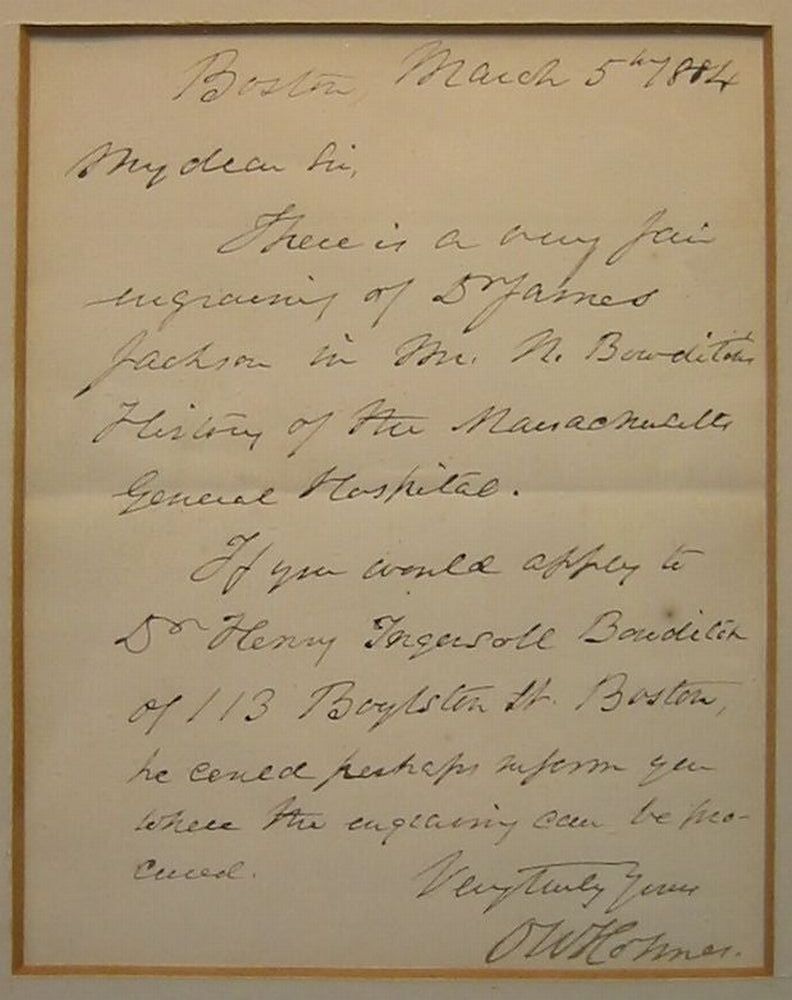 Boston, March 5th 1884
My dear Sir,
There is a very fair
engraving of Dr James
Jackson in Mr. N. Bowditch's
History of the Massachusetts
General Hospital.
If you would apply to
Dr Henry Ingersoll Bowditch
of 113 Boylston St. Boston,
he could perhaps inform you
where the engraving can be pro-
cured.
Very truly yours
O W Holmes.